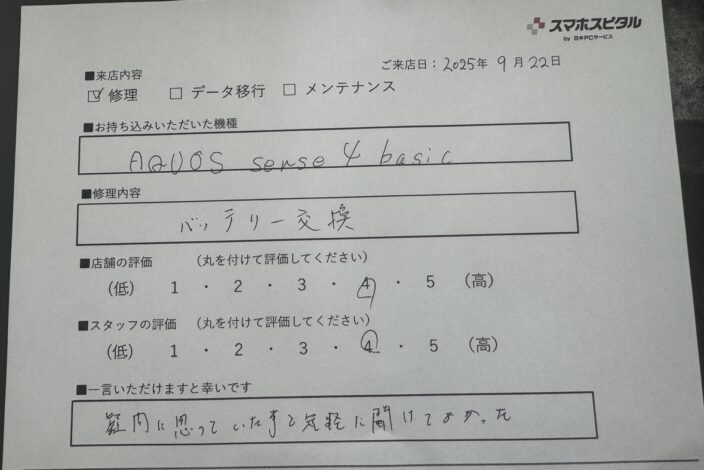 スマホスピタル
by 日本PCサービス
ご来店日：2025年 9月 22日
■来店内容
☑ 修理 □ データ移行 □ メンテナンス
■お持ち込みいただいた機種
AQUOS sense 4 basic
■修理内容
バッテリー交換
■店舗の評価 （丸を付けて評価してください）
（低） 1 ・ 2 ・ 3 ・ 4 ・ 5 （高）
■スタッフの評価 （丸を付けて評価してください）
（低） 1 ・ 2 ・ 3 ・ 4 ・ 5 （高）
■一言いただけますと幸いです
疑問に思っていた事を気軽に聞けてよかった